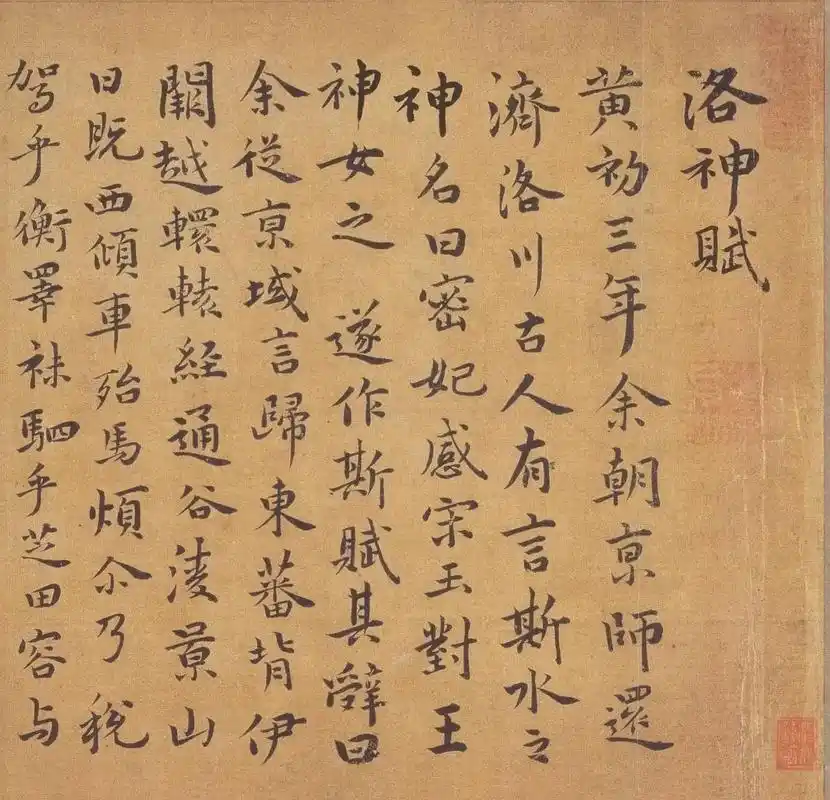 洛神賦
黃初三年余朝京師還
濟洛川古人有言斯水之
神名曰密妃感宋玉對王
神女之 遂作斯賦其辭曰
余從京域言歸東蕃背伊
闕越轘轅経通谷淩景山
日既西傾車殆馬煩尒乃稅
駕乎衡睪秣駟乎芝田容与